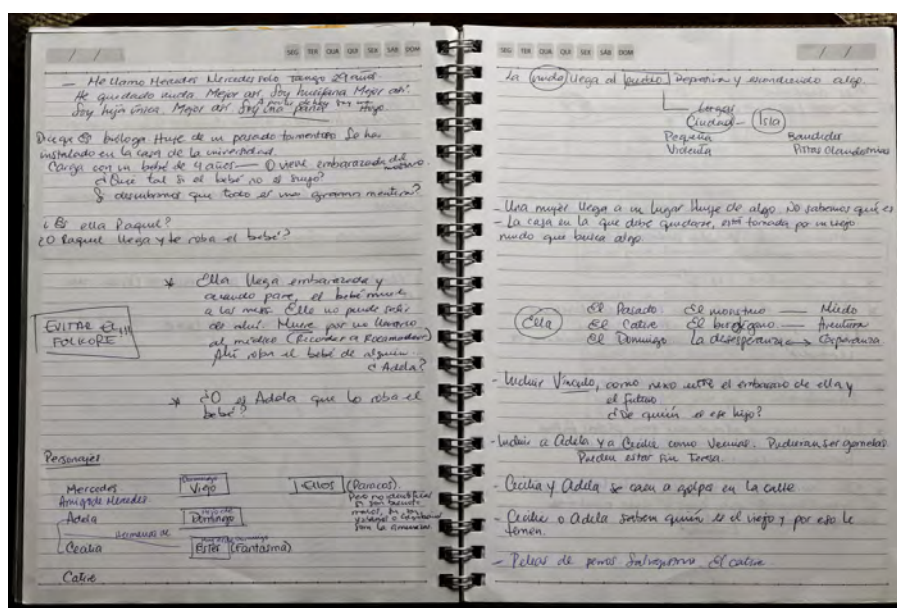 / /
SEG TER QUA QUI SEX SÁB DOM
Me llamo Mercedes Mercedes solo tengo 29 años.
He quedado viuda. Mejor así. Soy huérfana Mejor así.
Soy hija única. Mejor así.
A partir de hoy soy un
Duega es bióloga Huye de un pasado tormentoso Se ha
instalado en la casa de la universidad.
Carga con un bebé de 4 años — O viene embarazada del
mismo.
¿Qué tal si el bebé no es suyo?
Si descubrimos que todo es una gran mentira?
¿Es ella Raquel?
¿O Raquel llega y le roba el bebé?
* Ella llega embarazada y
cuando pare, el bebé muere
a los meses. Ella no puede salir
de ahí. Muere por un
al médico (Recordar a Rocamadour)
Ahí roban el bebé de alguien.
¿Adela?
EVITAR EL !!!
FOLKORE
* ¿O es Adela que le roba el
bebé?
Personajes
Mercedes
Amiga de Mercedes.
Adela
Hermana de
Cecilia
Catire
Viejo
Hijo de
Domingo
Ester (Fantasma)
Ellos (Paracos).
Pero no identificar
si son
malos,
o
son la amenaza
SEG TER QUA QUI SEX SÁB DOM
/ /
La viuda llega al pueblo Depresión y escondiendo algo.
Lugar
Ciudad — Isla
Pequeña Bandidos
Violenta Pistas Clandestinas
- Una mujer llega a un lugar Huye de algo. No sabemos qué es
- La casa en la que debe quedarse, está tomada por un viejo
mudo que busca algo.
Ella
El Pasado El monstruo — Miedo
El Catire El — Aventura
El Domingo La desesperanza ↔ Esperanza
- Incluir Vínculo, como nexo entre el embarazo de ella y
el futuro
¿De quién es ese hijo?
- Incluir a Adela y a Cecilia como Vecinas. Pudieran ser gemelas
Pueden estar sin Teresa.
- Cecilia y Adela se caen a golpes en la calle.
- Cecilia o Adela saben quién es el viejo y por eso le
temen.
- Peleas de perros Salvajismo El catire